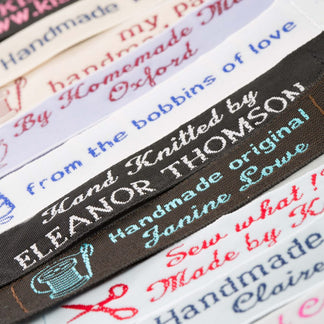 www.k
Handmade
my pa
handma
By Homemade M
Oxford
from the bobbins of love
Hand Knitted by
ELEANOR THOMSON
Handmade original
Janine Lowe
Sew what !
Made by K
Handmade
Claire